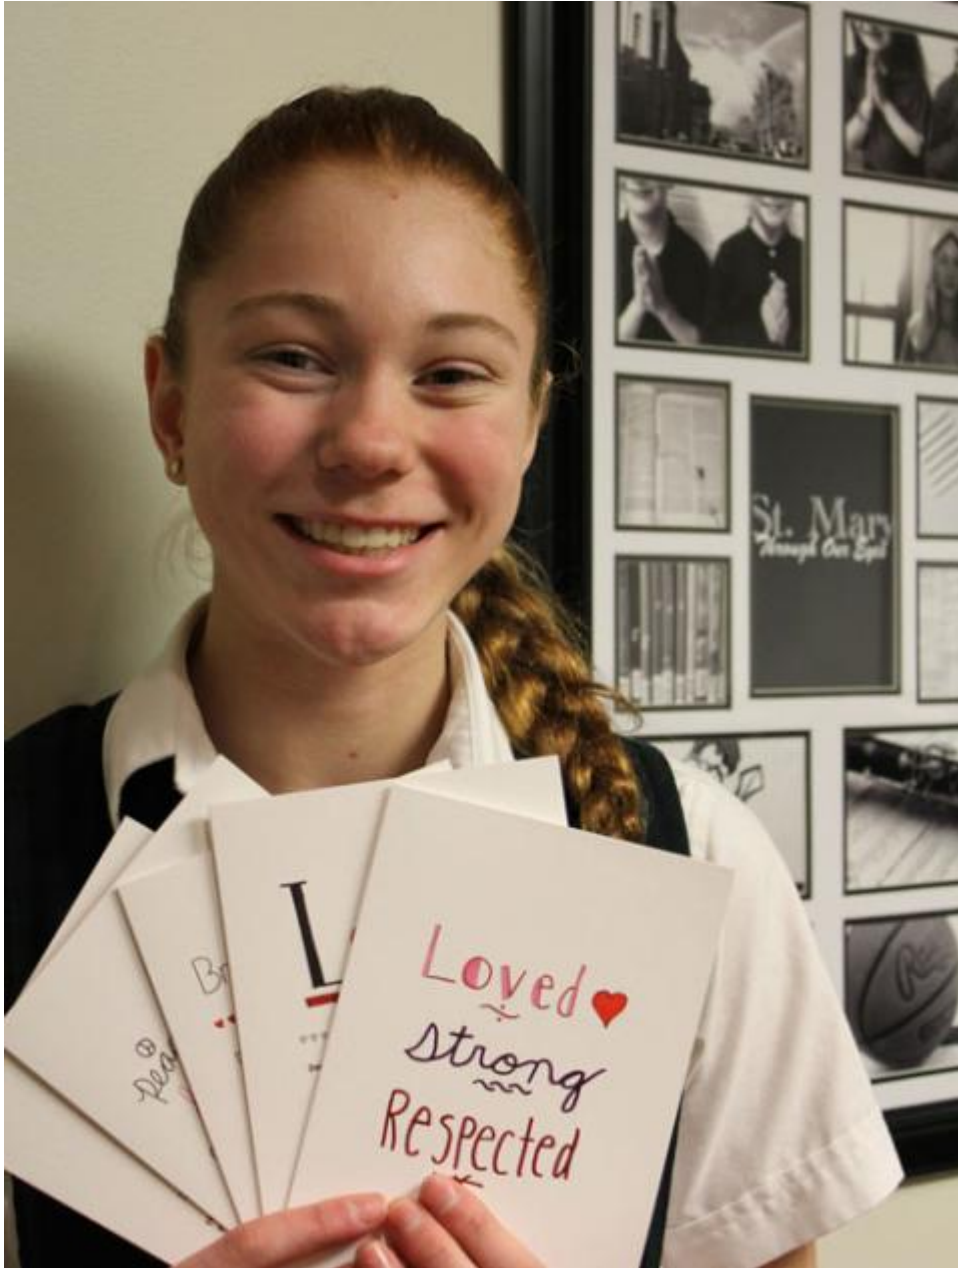 St. Mary
Through Our Eyes
L
Loved
Strong
Respected